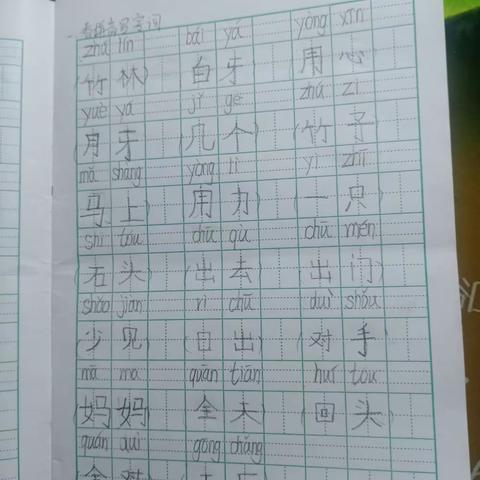 一、看拼音写字词
zhú lín bái yá yòng xīn
(竹林) (白牙) (用心)
yuè yá jǐ gè zhú zi
(月牙) (几个) (竹子)
mǎ shàng yòng lì yì zhī
(马上) (用力) (一只)
shí tóu chū qù chū mén
(石头) (出去) (出门)
shǎo jiàn rì chū duì shǒu
(少见) (日出) (对手)
mā ma quán tiān huí tóu
(妈妈) (全天) (回头)
quán duì gōng chǎng